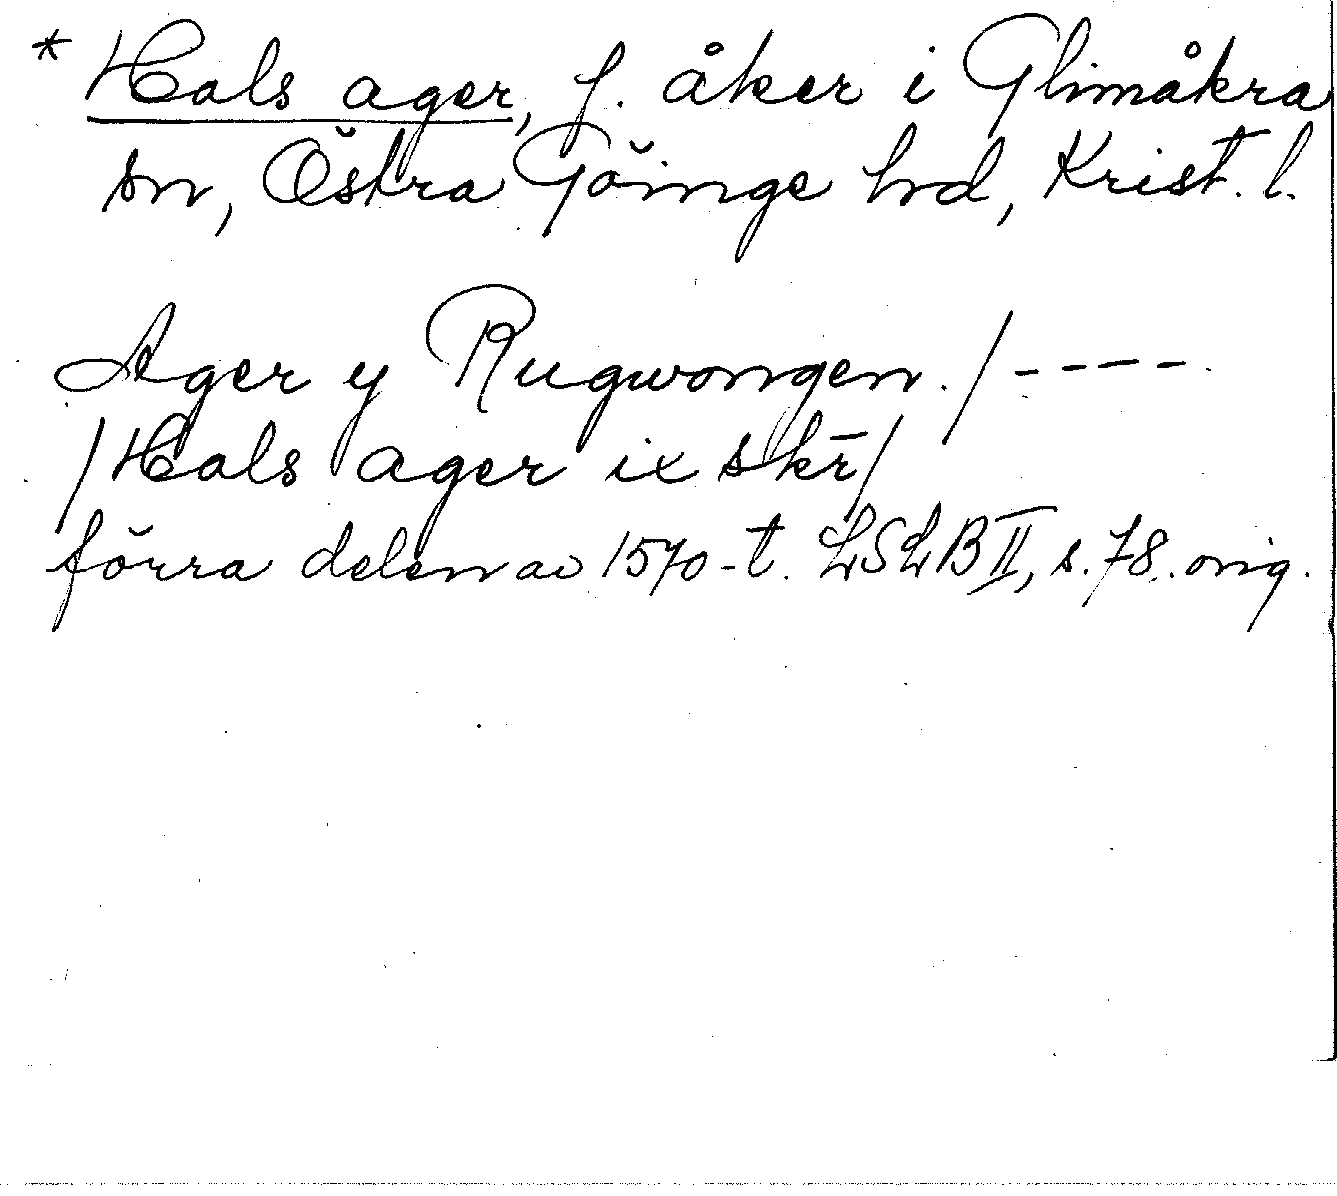 * Hals ager, f. åker i Glimåkra
sn, Östra Göinge hd, Krist. l.
Ager y Rugwongen. / ----.
/ Hals ager ix skr̄ /
förra delen av 1570-t. LSLB II, s. 78. orig.